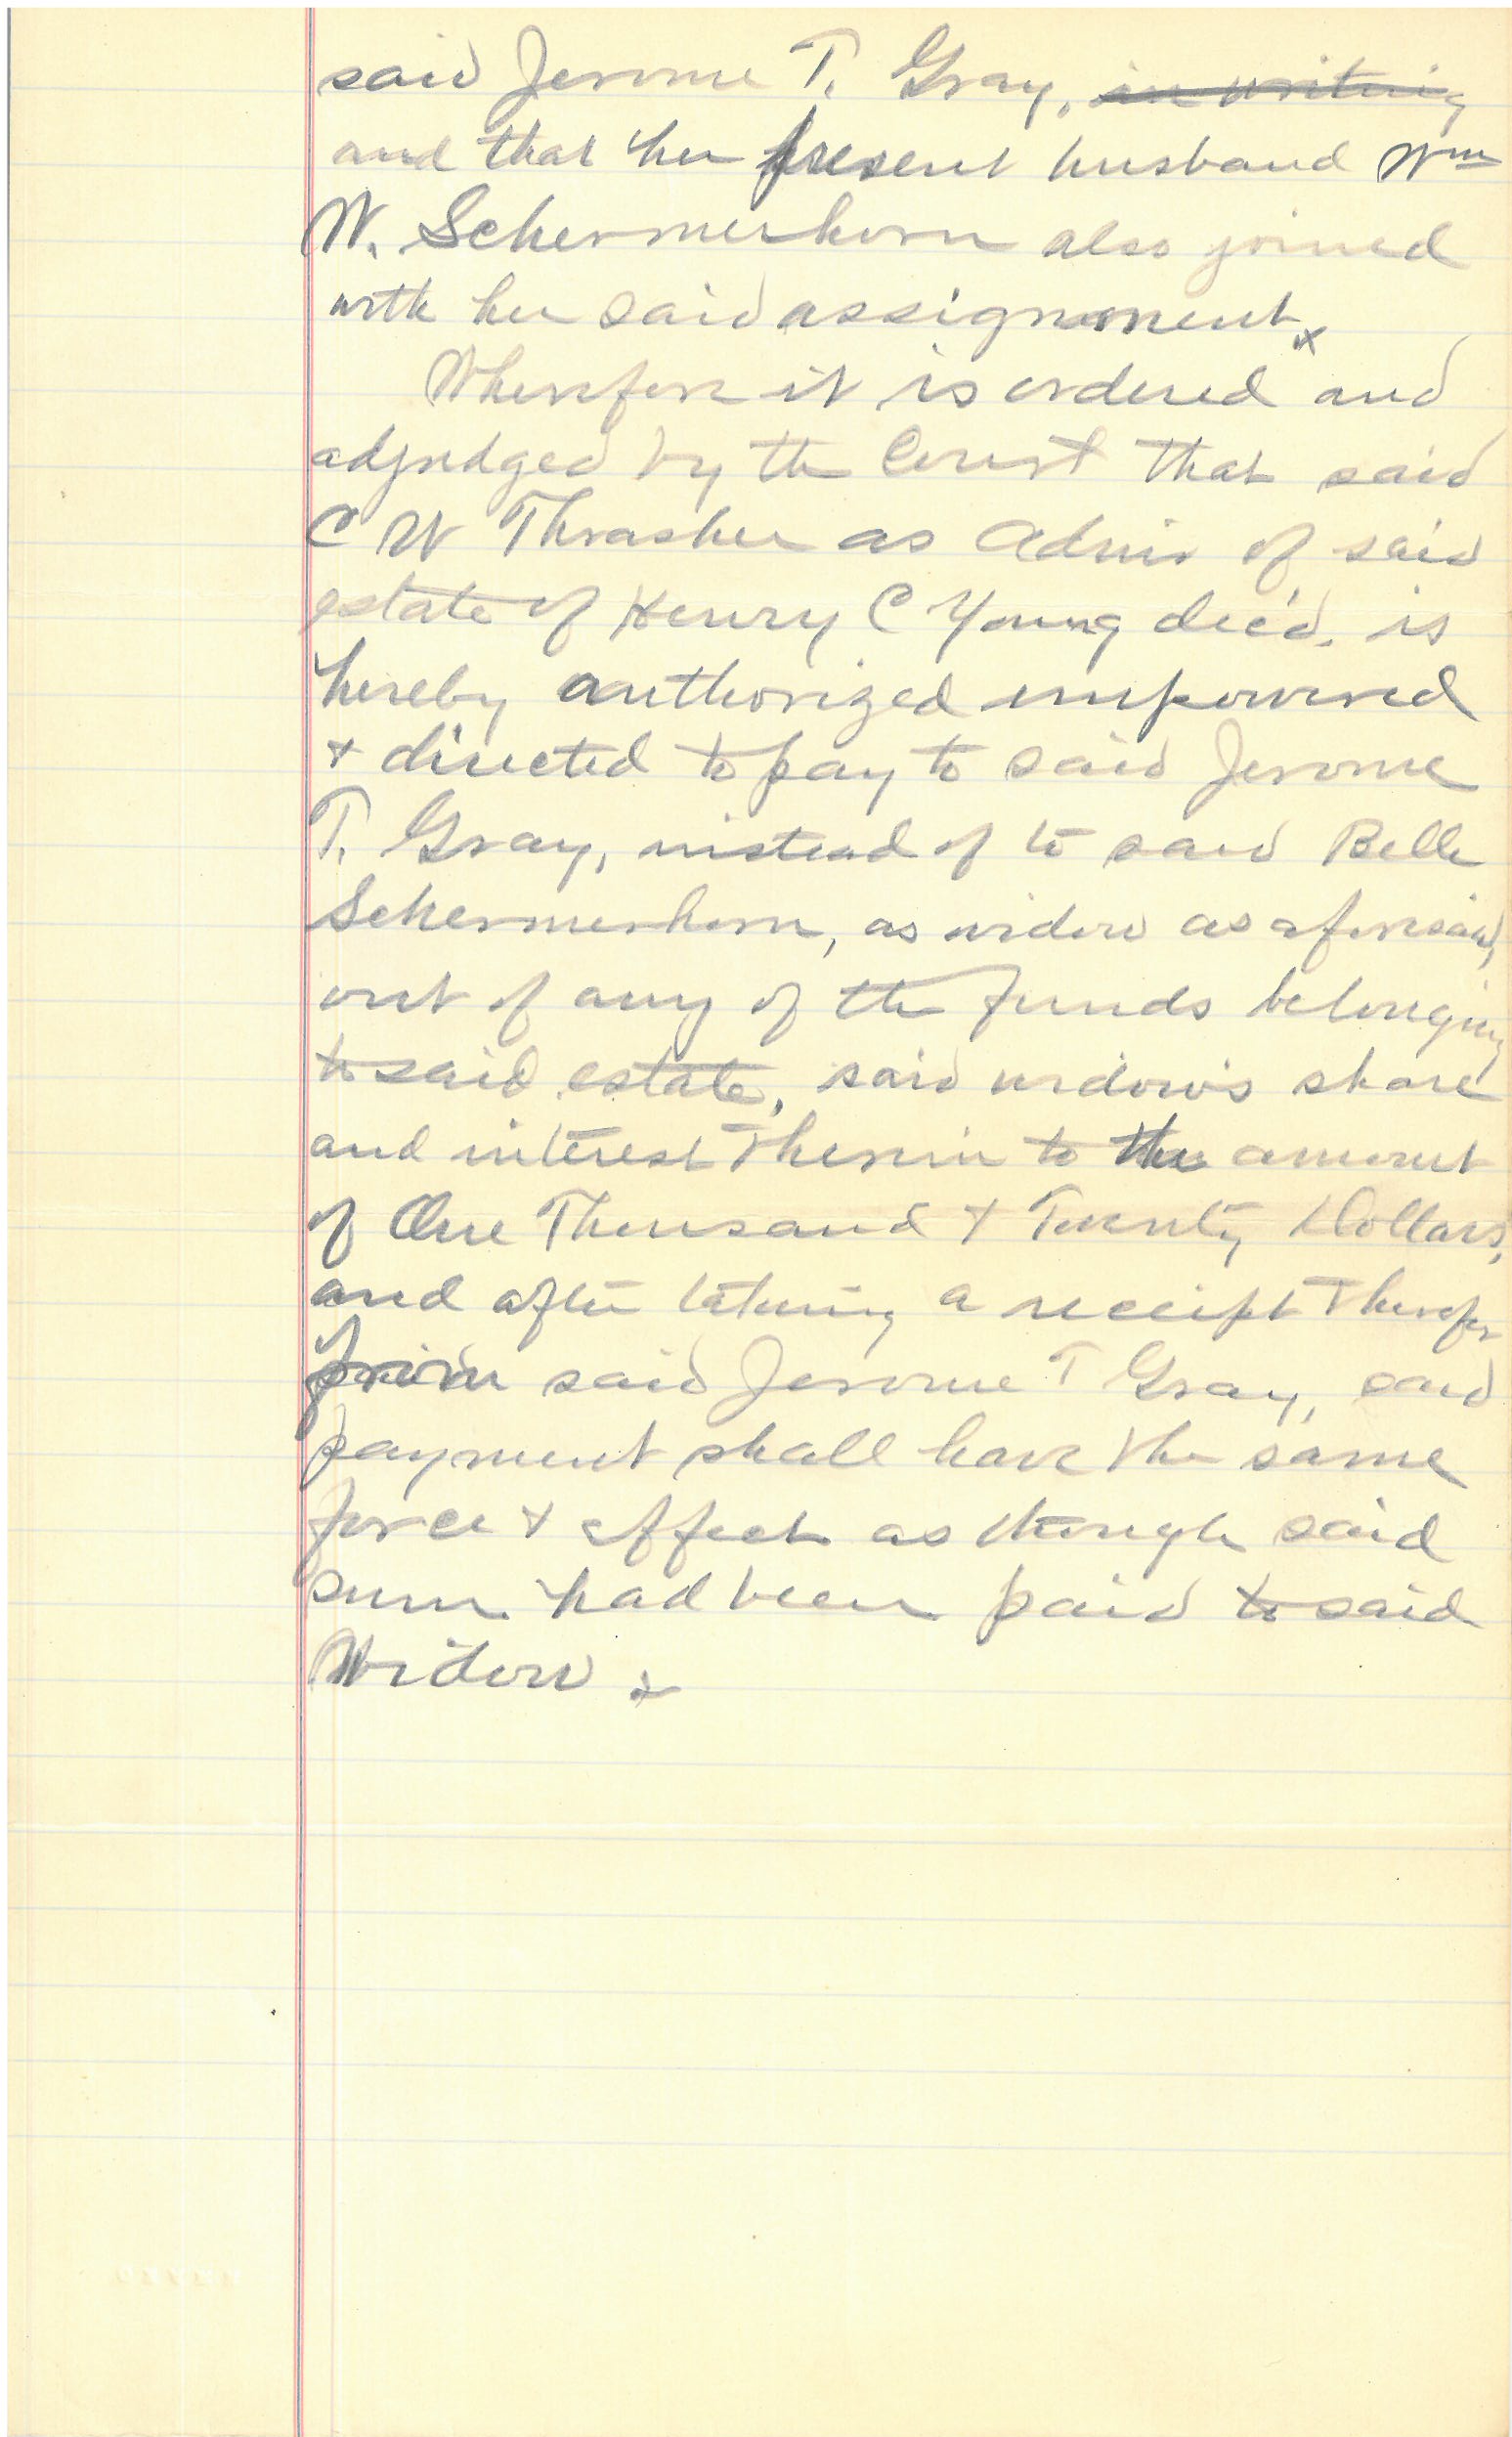 said Jerome T. Gray, in writing
and that her present husband Wm
W. Schermerhorn also joined
with her said assignment x
Wherefore it is ordered and
adjudged by the Court that said
C W Thrasher as Admr of said
estate of Henry C Young dec'd, is
hereby authorized empowered
+ directed to pay to said Jerome
T. Gray, instead of to said Belle
Schermerhorn, as widow as aforesaid,
out of any of the funds belonging
to said estate, said widow's share
and interest therein to the amount
of One Thousand + Twenty Dollars,
and after taking a receipt therefor
from said Jerome T Gray, said
payment shall have the same
force + effect as though said
sum had been paid to said
Widow x